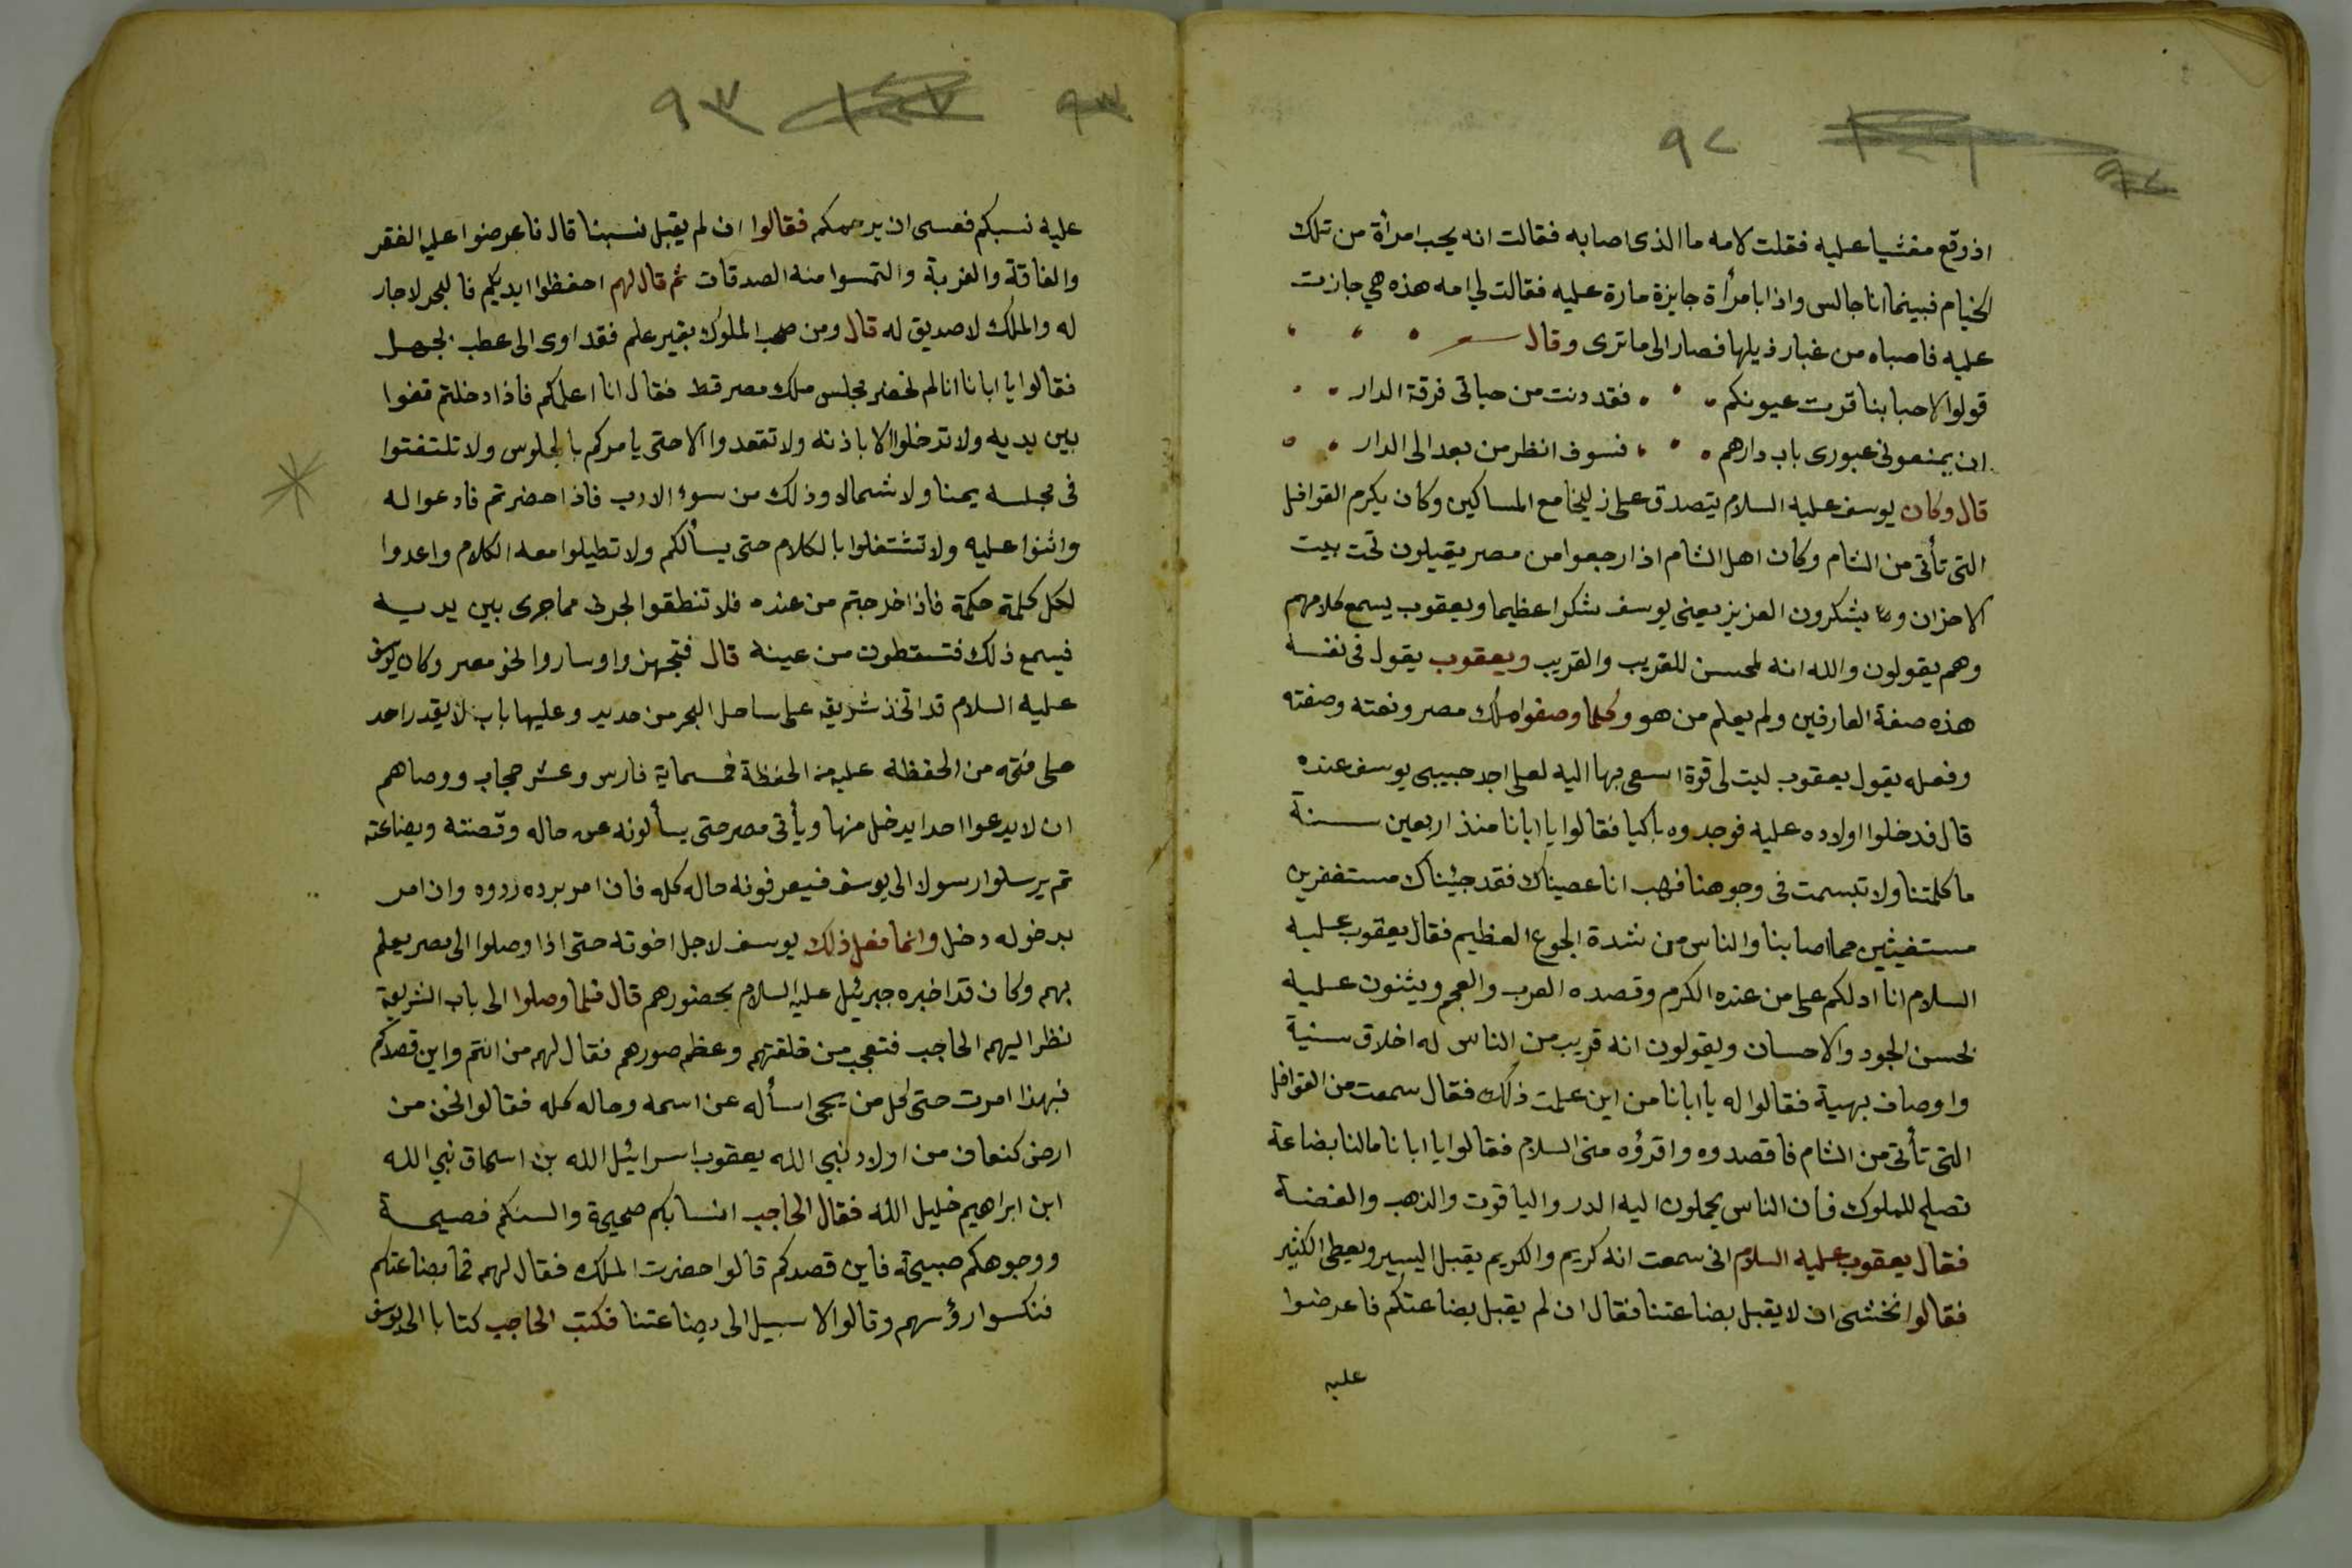 ٩٢
اذ وقع مغشيا عليه فقلت لامه ما الذى اصابه فقالت انه يحب امرأة من تلك
الخيام فبينما انا جالس واذا بامرأة جايزة مارة عليه فقالت لي امه هذه هي جازت
عليه فاصباه من غبار ذيلها فصار الى ما ترى وقال
قولوا لاحبابنا قرت عيونكم فقد دنت من حياتى فرقة الدار
ان يمنعونى عبورى باب دارهم فسوف انظر من بعد الى الدار
قال وكان يوسف عليه السلام يتصدق على زليخا مع المساكين وكان يكرم القوافل
التى تأتى من الشام وكان اهل الشام اذا رجعوا من مصر يقيلون تحت بيت
الاحزان و يشكرون العزيز يعنى يوسف شكرا عظيما ويعقوب يسمع كلامهم
وهم يقولون والله انه لمحسن للقريب والقريب ويعقوب يقول فى نفسه
هذه صفة العارفين ولم يعلم من هو وكلما وصفوا ملك مصر ونعته وصفته
وفعله يقول يعقوب ليت لى قوة اسعى بها اليه لعلى اجد حبيبى يوسف عنده
قال فدخلوا اولاده عليه فوجدوه باكيا فقالوا يا ابانا منذ اربعين سنة
ما كلمتنا ولا تبسمت فى وجوهنا فهب انا عصيناك فقد جيئناك مستغفرين
مستغيثين مما اصابنا والناس من شدة الجوع العظيم فقال يعقوب عليه
السلام انا ادلكم على من عنده الكرم وقصده العرب والعجم ويثنون عليه
لحسن الجود والاحسان ويقولون انه قريب من الناس له اخلاق سنية
واوصاف بهية فقالوا له يا ابانا من اين علمت ذلك فقال سمعت من القوافل
التى تأتى من الشام فاقصدوه واقرؤه منى السلام فقالوا يا ابانا ما لنا بضاعة
تصلح للملوك فأن الناس يحملون اليه الدر والياقوت والذهب والفضة
فقال يعقوب عليه السلام انى سمعت انه كريم والكريم يقبل اليسير ويعطى الكثير
فقالوا نخشى ان لا يقبل بضاعتنا فقال ان لم يقبل بضاعتكم فاعرضوا
عليه
٩٣
عليه نسبكم فعسى ان يرحمكم فقالوا ان لم يقبل نسبنا قال فاعرضوا عليه الفقر
والفاقة والغربة والتمسوا منه الصدقات ثم قال لهم احفظوا ايديكم فالبحر لا جار
له والملك لا صديق له قال ومن صحب الملوك بغير علم فقد اوى الى عطب الجهل
فقالوا يا ابانا انا لم نحضر مجلس ملك مصر قط فقال انا اعلمكم فاذا دخلتم قفوا
بين يديه ولا تدخلوا الا باذنه ولا تقعدوا الا حتى يامركم بالجلوس ولا تلتفتوا
فى مجلسه يمينا ولا شمالا وذلك من سوء الادب فاذا حضرتم فادعوا له
واثنوا عليه ولا تشتغلوا بالكلام حتى يسألكم ولا تطيلوا معه الكلام واعدوا
لكل كلمة حكمة فاذا خرجتم من عنده فلا تنطقوا لجرى مما جرى بين يديه
فيسمع ذلك فتسقطون من عينه قال فتجهزوا وساروا نحو مصر وكان يوسف
عليه السلام قد اتخذ شريعة على ساحل البحر من حديد وعليها باب لا يقدر احد
على فتحه من الحفظه عليه من الحفظة خمسماية فارس وعشر حجاب ووصاهم
ان لا يدعوا احدا يدخل منها ويأتى مصر حتى يسألونه عن حاله وقصته وبضاعته
ثم يرسلوا رسولا الى يوسف فيعرفونه حاله كله فان امر برده ردوه وان امر
بدخوله دخل وانما فعل ذلك يوسف لاجل اخوته حتى اذا وصلوا الى مصر يعلم
بهم وكان قد اخبره جبرئيل عليه السلام بحضورهم قال فلما وصلوا الى باب الشريعة
نظر اليهم الحاجب فتعجب من خلقتهم وعظم صورهم فقال لهم من انتم واين قصدكم
فبهذا امرت حتى كل من يجى اسأله عن اسمه وحاله كله فقالوا نحن من
ارض كنعان من اولاد نبي الله يعقوب اسرائيل الله بن اسحاق نبي الله
ابن ابراهيم خليل الله فقال الحاجب انسابكم صحيحة والسنكم فصيحة
ووجوهكم صبيحة فاين قصدكم قالوا حضرت الملك فقال لهم فما بضاعتكم
فنكسوا رؤسهم وقالوا لا سبيل الى بضاعتنا فكتب الحاجب كتابا الى يوسف